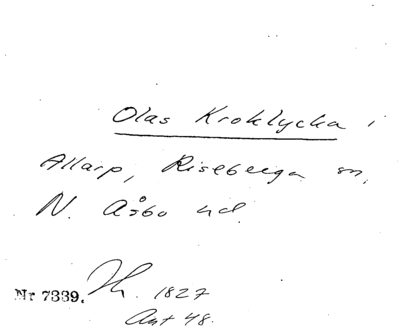 Olas Kroklycka i
Allarp, Riseberga sn,
N. Åsbo hd.
Nr 7339. Th. 1827
Ant 48.